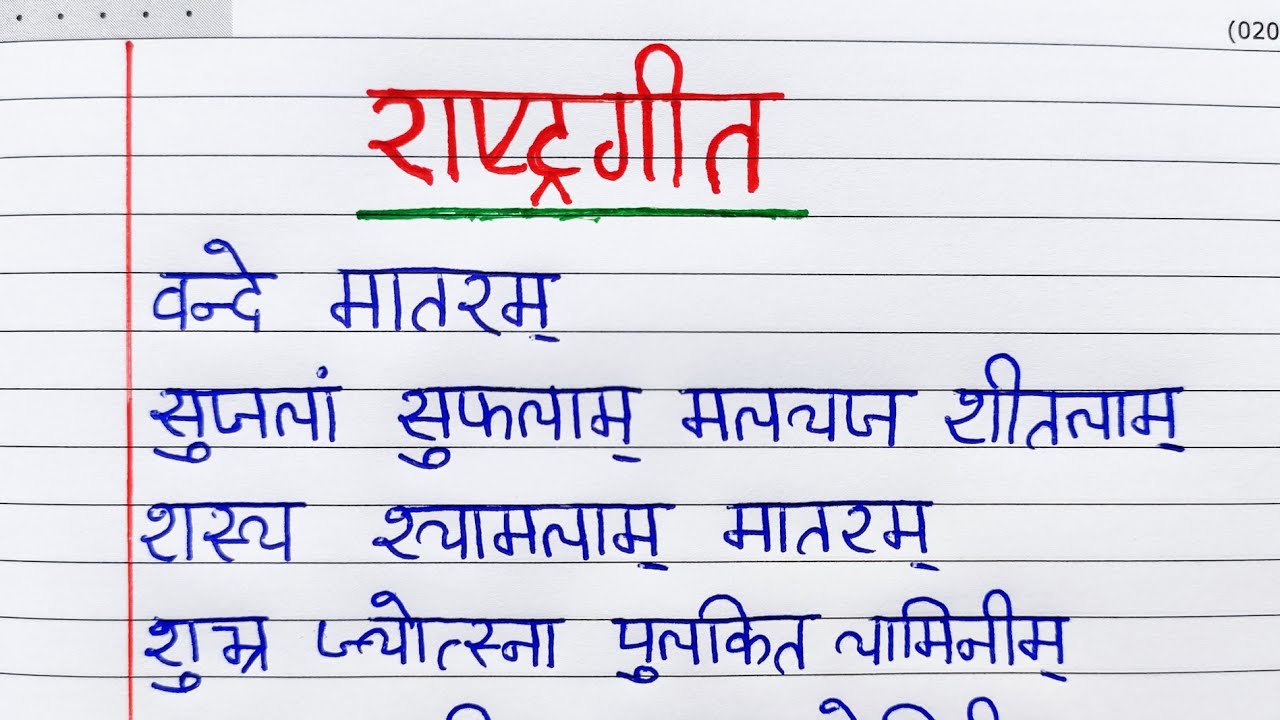 (020
राष्ट्रगीत
वन्दे मातरम्
सुजलां सुफलाम् मलयज शीतलाम्
शस्य श्यामलाम् मातरम्
शुभ्र ज्योत्स्ना पुलकित यामिनीम्